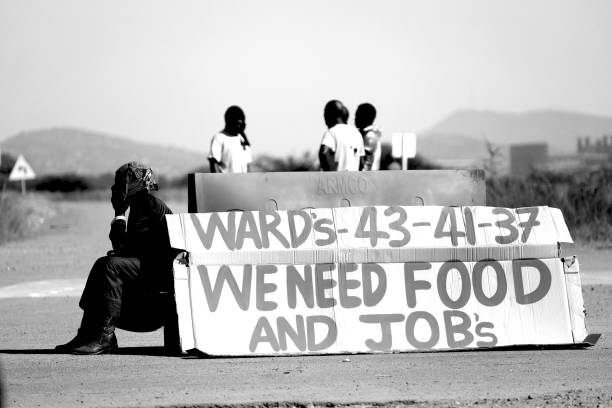 ARMCO
WARD's-43-41-37
WE NEED FOOD
AND JOB's